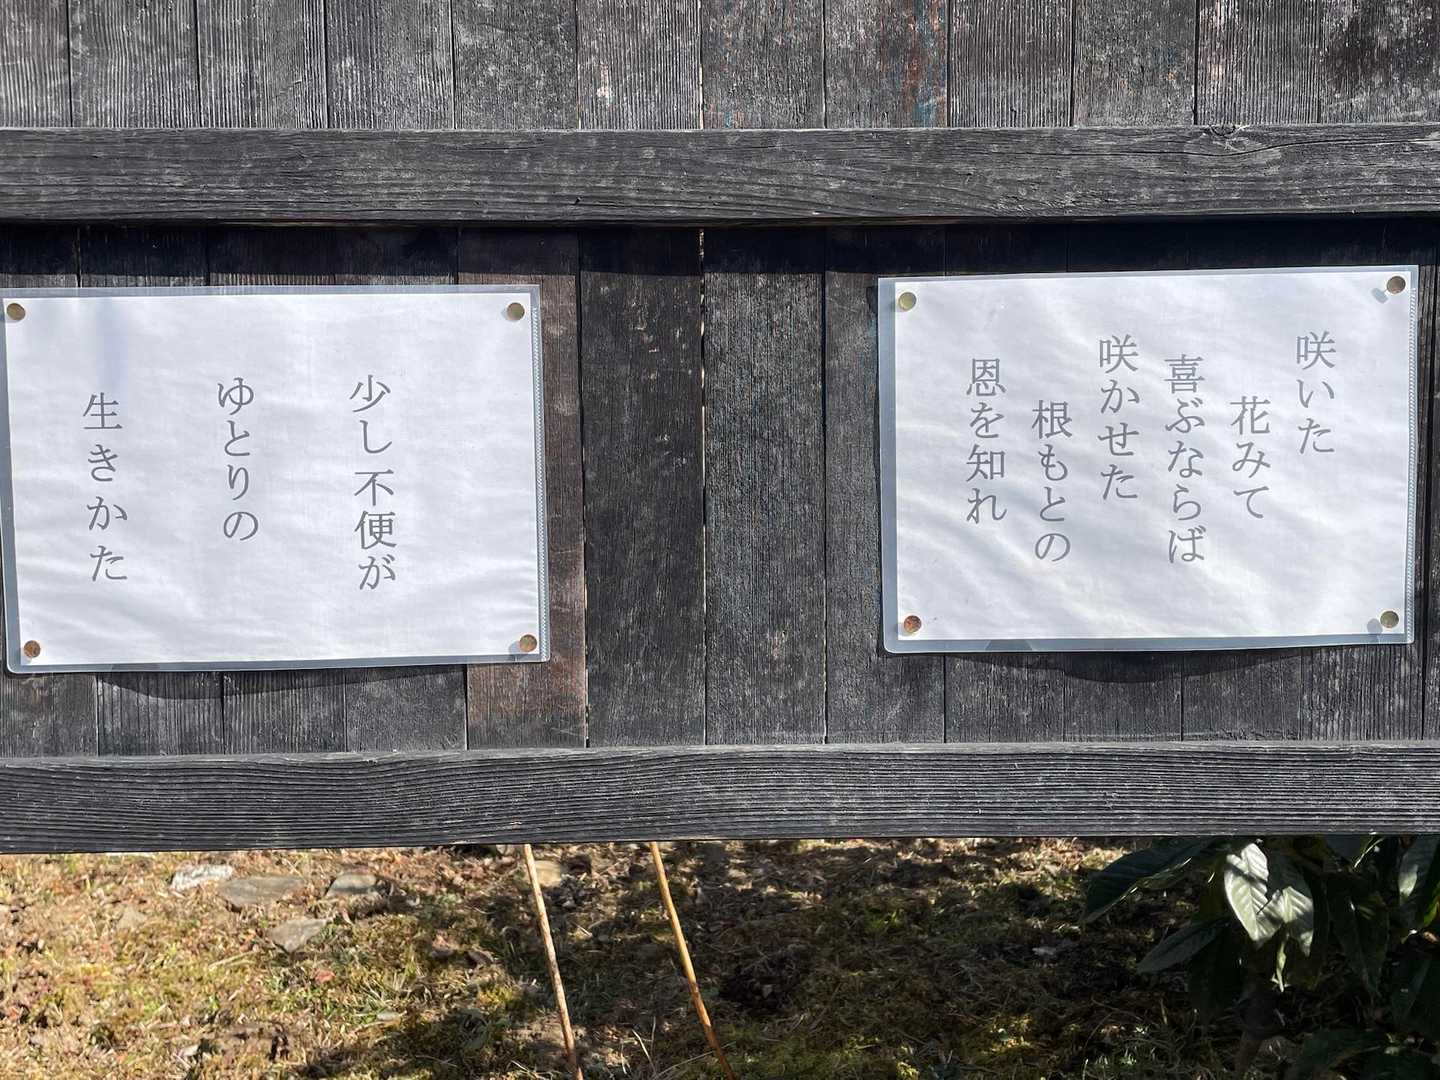 咲いた
花みて
喜ぶならば
咲かせた
根もとの
恩を知れ
少し不便が
ゆとりの
生きかた